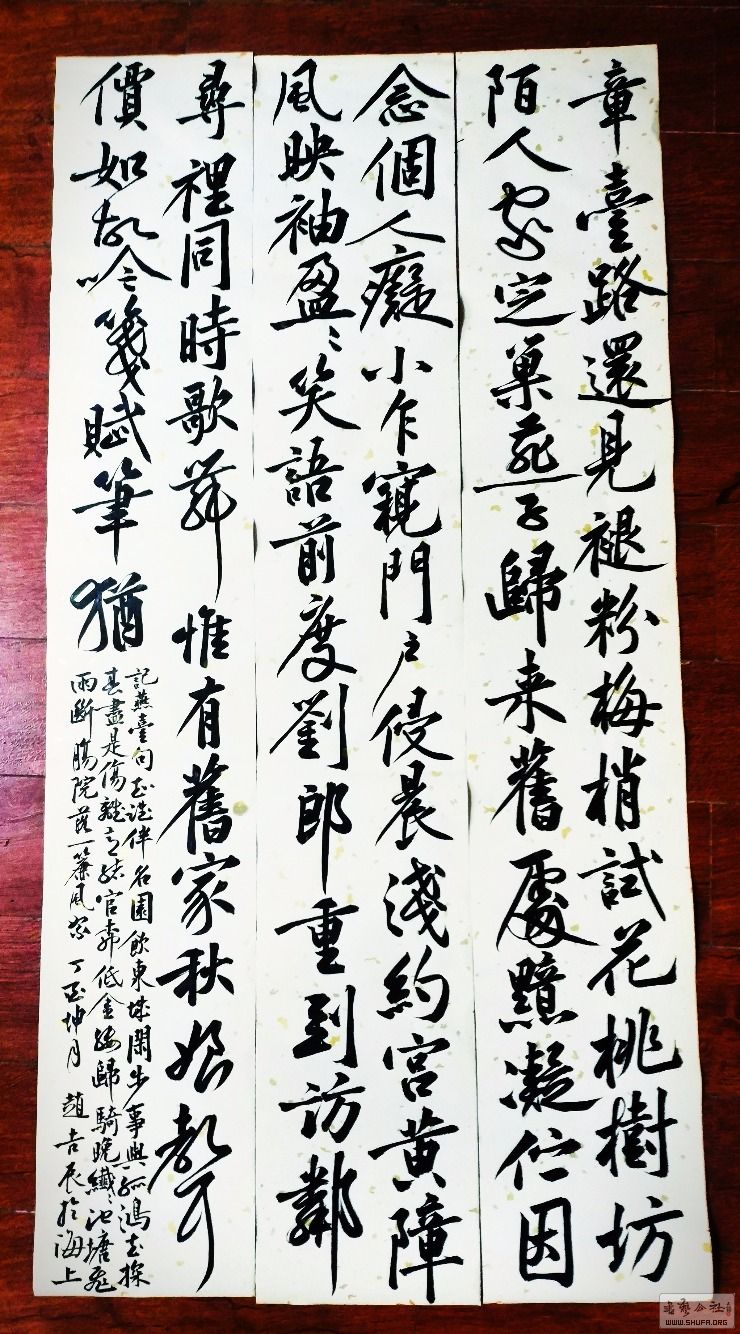 章臺路還見褪粉梅梢試花桃樹坊
陌人家定巢燕子歸来舊處黯凝佇因
念個人癡小乍窺門戶侵晨淺約宮黃障
風映袖盈〻笑語前度劉郎重到訪鄰
尋裡同時歌舞惟有舊家秋娘聲
價如故吟箋賦筆猶
記燕臺句知誰伴名園飲東城閑步事與孤鴻去探
春盡是傷離意緒官柳低金縷歸騎晚纖〻池塘飛
雨斷腸院落一簾風絮 丁酉坤月 趙吉辰於海上
書藝公社
WWW.SHUFA.ORG